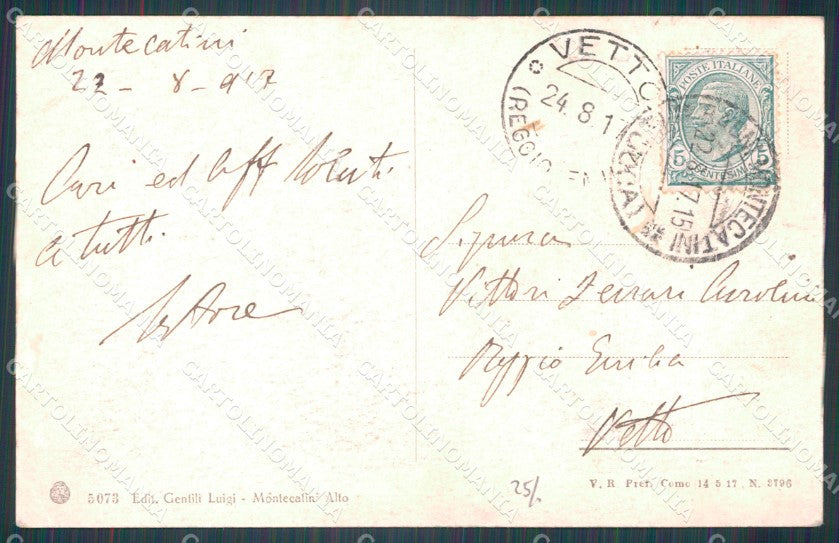 Montecatini
22 - 8 - 917
Cari ed Aff Saluti
a tutti
VETTO
(REGGIO EMILIA)
24. 8. 1
POSTE ITALIANE
5 5
CENTESIMI
MONTECATINI
17.15
Signora
Vittori Ferrari Carolina
Reggio Emilia
Vetto
5073 Edit. Gentili Luigi - Montecatini Alto
25/.
V. R. Pref. Como 14 5 17 . N. 3796
CARTOLINOMANIA